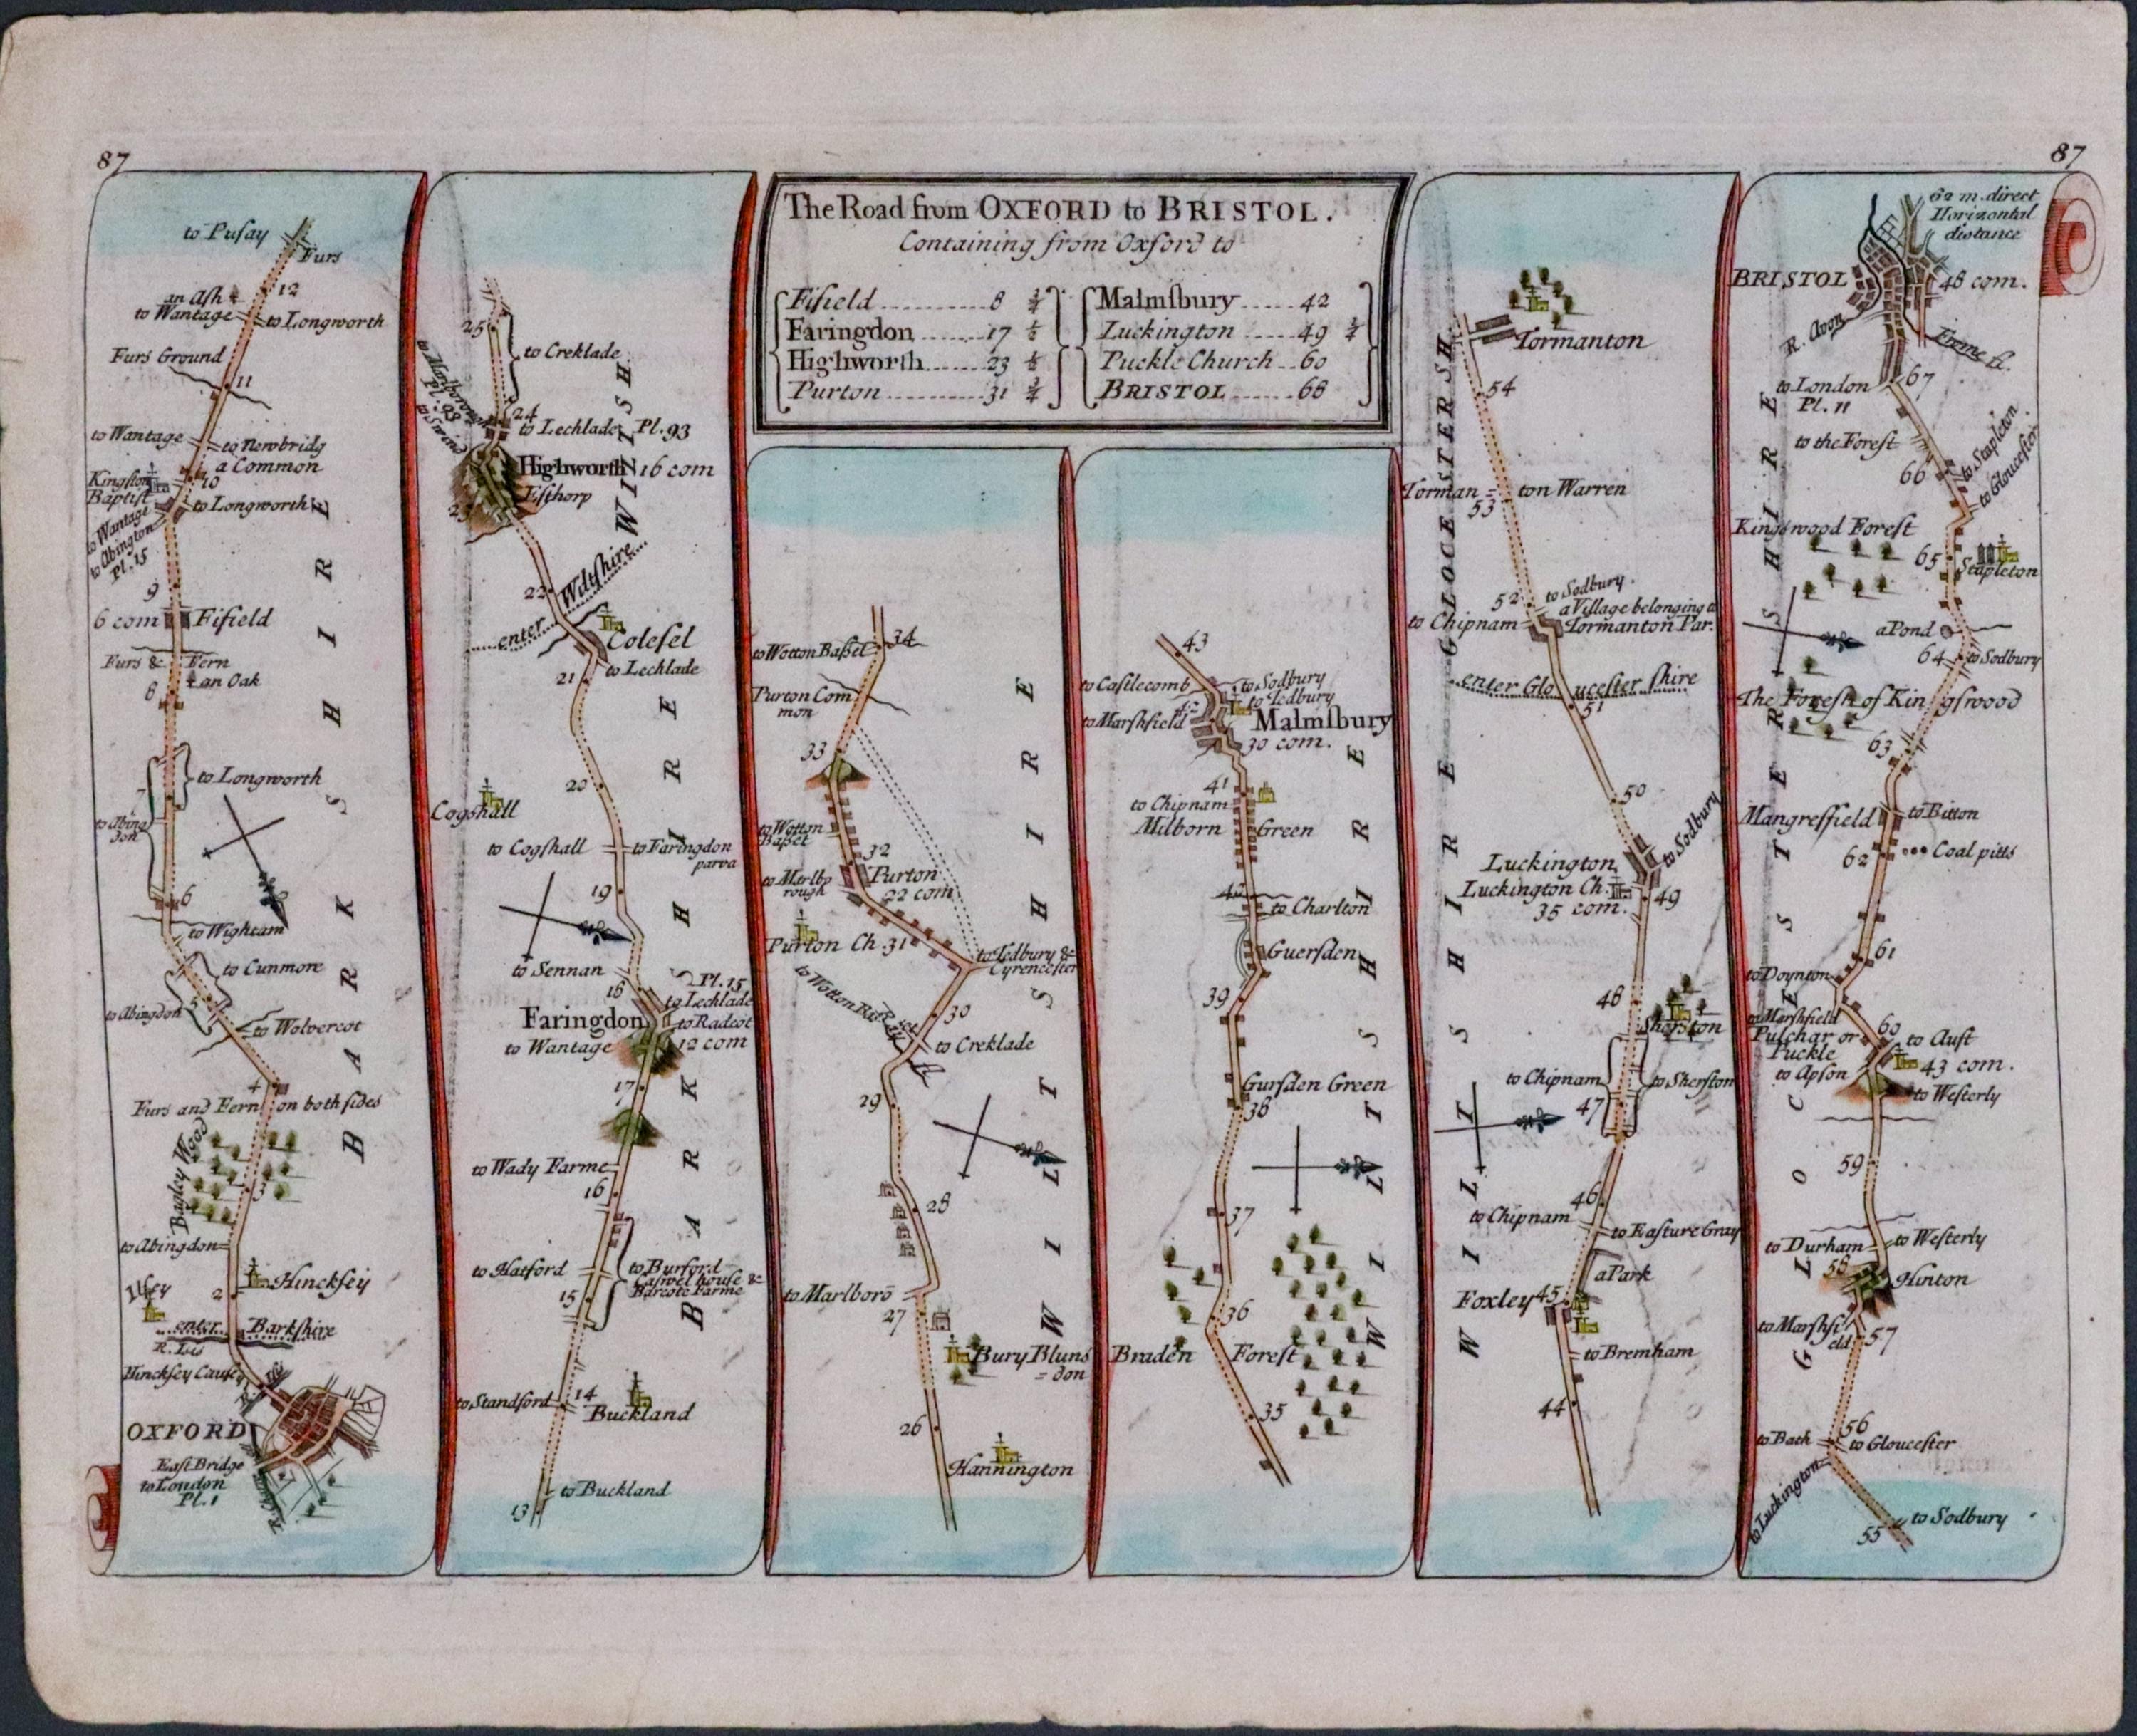 87
87
The Road from OXFORD to BRISTOL.
Containing from Oxford to
Fifield 8 3/4
Faringdon 17
Highworth 23
Purton 31 3/4
Malmſbury 42
Luckington 49
Puckle Church 60
BRISTOL 68
to Puſay
Furs
12
an Aſh
to Wantage
to Longworth
Furs Ground
11
to Wantage
to Newbridg
a Common
Kingſton
Baptiſt
10
to Longworth
to Wantage
to Abington
Pl. 15
9
6 com
Fifield
Furs &
Fern
an Oak
8
to Longworth
7
to Abing
don
6
to Wightam
to Cunmore
to Abingdon
5
to Wolvercot
4
Furs and Fern on both ſides
Bagley Wood
3
to Abingdon
Iſley
2
Hinckſey
enter Barkſhire
R. Iſis
Hinckſey Cauſey
OXFORD
Eaſt Bridge
to London
Pl. 1
BARKSHIRE
25
to Creklade
to Marlborough
Pl. 93
24
to Lechlade Pl. 93
Highworth 16 com
Eſthorp
23
22
enter Wiltſhire
WILTSH
Coleſel
21
to Lechlade
20
Cogshall
to Cogſhall
to Faringdon
parva
19
to Sennan
Pl. 15
18
to Lechlade
Faringdon
to Radcot
to Wantage
12 com
17
to Wady Farme
16
to Hatford
to Burford
Caswel houſe &
Barcote Farme
15
to Standford
14
Buckland
to Buckland
13
BARKSHIRE
34
to Wotton Baſſet
Purton Com
mon
33
to Wotton
Baſſet
32
to Marlbo
rough
Purton
22 com
Purton Ch.
31
to Tedbury &
Cyrenceſter
30
to Creklade
29
28
to Marlboro
27
Bury Bluns
=don
26
Hannington
WILTSHIRE
43
to Caſtlecomb
to Sodbury
to Tedbury
to Marſhfield
42
Malmſbury
30 com.
41
to Chipnam
Milborn Green
to Charlton
Guerſden
39
Gurſden Green
38
37
36
Braden Foreſt
35
WILTSHIRE
Tormanton
54
Torman=ton Warren
53
GLOCESTERSH
52
to Sodbury.
to Chipnam
a Village belonging to
Tormanton Par.
enter Gloucester ſhire
51
50
to Sodbury
Luckington
Luckington Ch.
35 com.
49
48
Sherston
to Chipnam
to Sherſton
47
46
to Chipnam
to Eaſture Gray
a Park
Foxley
45
to Bremham
44
WILTSHIRE
62 m. direct
Horizontal
distance
BRISTOL
48 com.
R. Avon
Frome fl.
67
to London
Pl. 11
to the Foreſt
to Stapleton
66
to Glouceſter
Kingſwood Foreſt
65
Stapleton
a Pond
64
to Sodbury
The Foreſt of Kingſwood
63
Mangreſfield
to Bitton
62
Coal pitts
61
to Doynton
to Marſhfield
60
Pulchar or
Puckle
to Auſt
43 com.
to Apſon
to Weſterly
59
to Durham
to Weſterly
58
Hinton
to Marſhfi
eld
57
56
to Bath
to Glouceſter
to Luckington
55
to Sodbury
GLOCESTERSHIRE